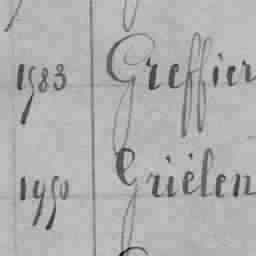 1583 Greffier
1450 Griélen